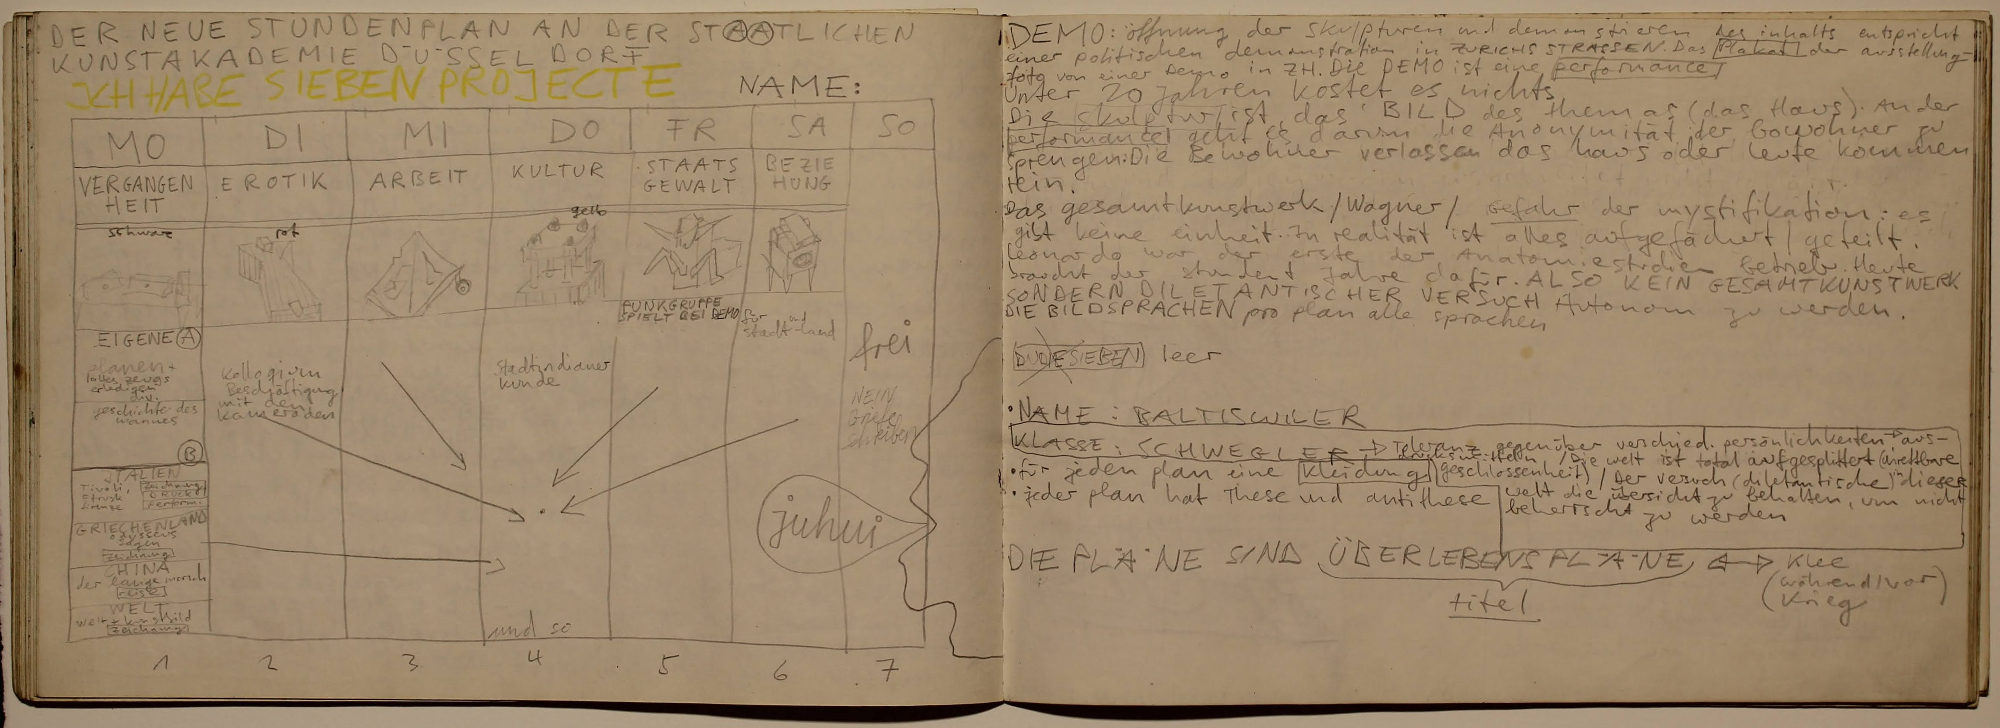 DER NEUE STUNDENPLAN AN DER STAATLICHEN
KUNSTAKADEMIE DÜSSELDORF
ICH HABE SIEBEN PROJECTE
NAME:
MO DI MI DO FR SA SO
VERGANGEN
HEIT
EROTIK
ARBEIT
KULTUR
STAATS
GEWALT
BEZIE
HUNG
schwarz
rot
gelb
FUNKGRUPPE
SPIELT BEI DEMO
für
stadt und land
EIGENE A
planen +
erledigen
div.
geschichte des
mannes
B
Kollogium
Beschäftigung
mit den
Kameraden
Stadtindianer
kunde
frei
NEIN
Briefe
schreiben
juhui
ITALIEN
Tivoli,
Etrusk
Zeichnung
DRUCK
Perform.
GRIECHENLAND
odysseus
sagen
Zeichnung
CHINA
der lange marsch
reise
WELT
Welt + kunstbild
Zeichnung
und so
1 2 3 4 5 6 7
DEMO: öffnung der skulpturen und demonstrieren des inhalts entspricht
einer politischen demonstration in ZÜRICHS STRASSEN. Das Plakat der ausstellung =
foto von einer Demo in ZH. Die DEMO ist eine performance
Unter 20 Jahren kostet es nichts
Die skulptur ist das BILD des themas (das Haus). An der
performance geht es darum die Anonymität der Bewohner zu
sprengen: Die Bewohner verlassen das haus oder leute kommen
rein.
Das gesamtkunstwerk / Wagner / Gefahr der mystifikation: es
gibt keine einheit. In realität ist alles aufgefächert / geteilt.
Leonardo war der erste der Anatomiestudien betrieb. Heute
braucht der student Jahre dafür. ALSO KEIN GESAMTKUNSTWERK
SONDERN DILETANTISCHER VERSUCH Autonom zu werden.
DIE BILDSPRACHEN pro plan alle sprachen
DIE SIEBEN leer
• NAME: BALTISWILER
KLASSE: SCHWEGLER → Toleranz gegenüber verschied. persönlichkeiten → aus-
/ Die welt ist total aufgesplittert
• für jeden plan eine Kleidung
geschlossenheit) / Der versuch (diletantische) dieser
• jeder plan hat These und antithese
welt die übersicht zu behalten, um nicht
beherrscht zu werden
DIE PLÄNE SIND ÜBERLEBENSPLÄNE ↔ Klee
(während / vor
Krieg)
titel